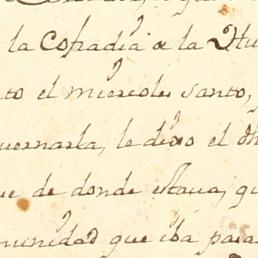 la Cofradia a la
to el miercoles santo,
uernarla, le dixo el
ue de donde estaua, qu
munidad que iba para